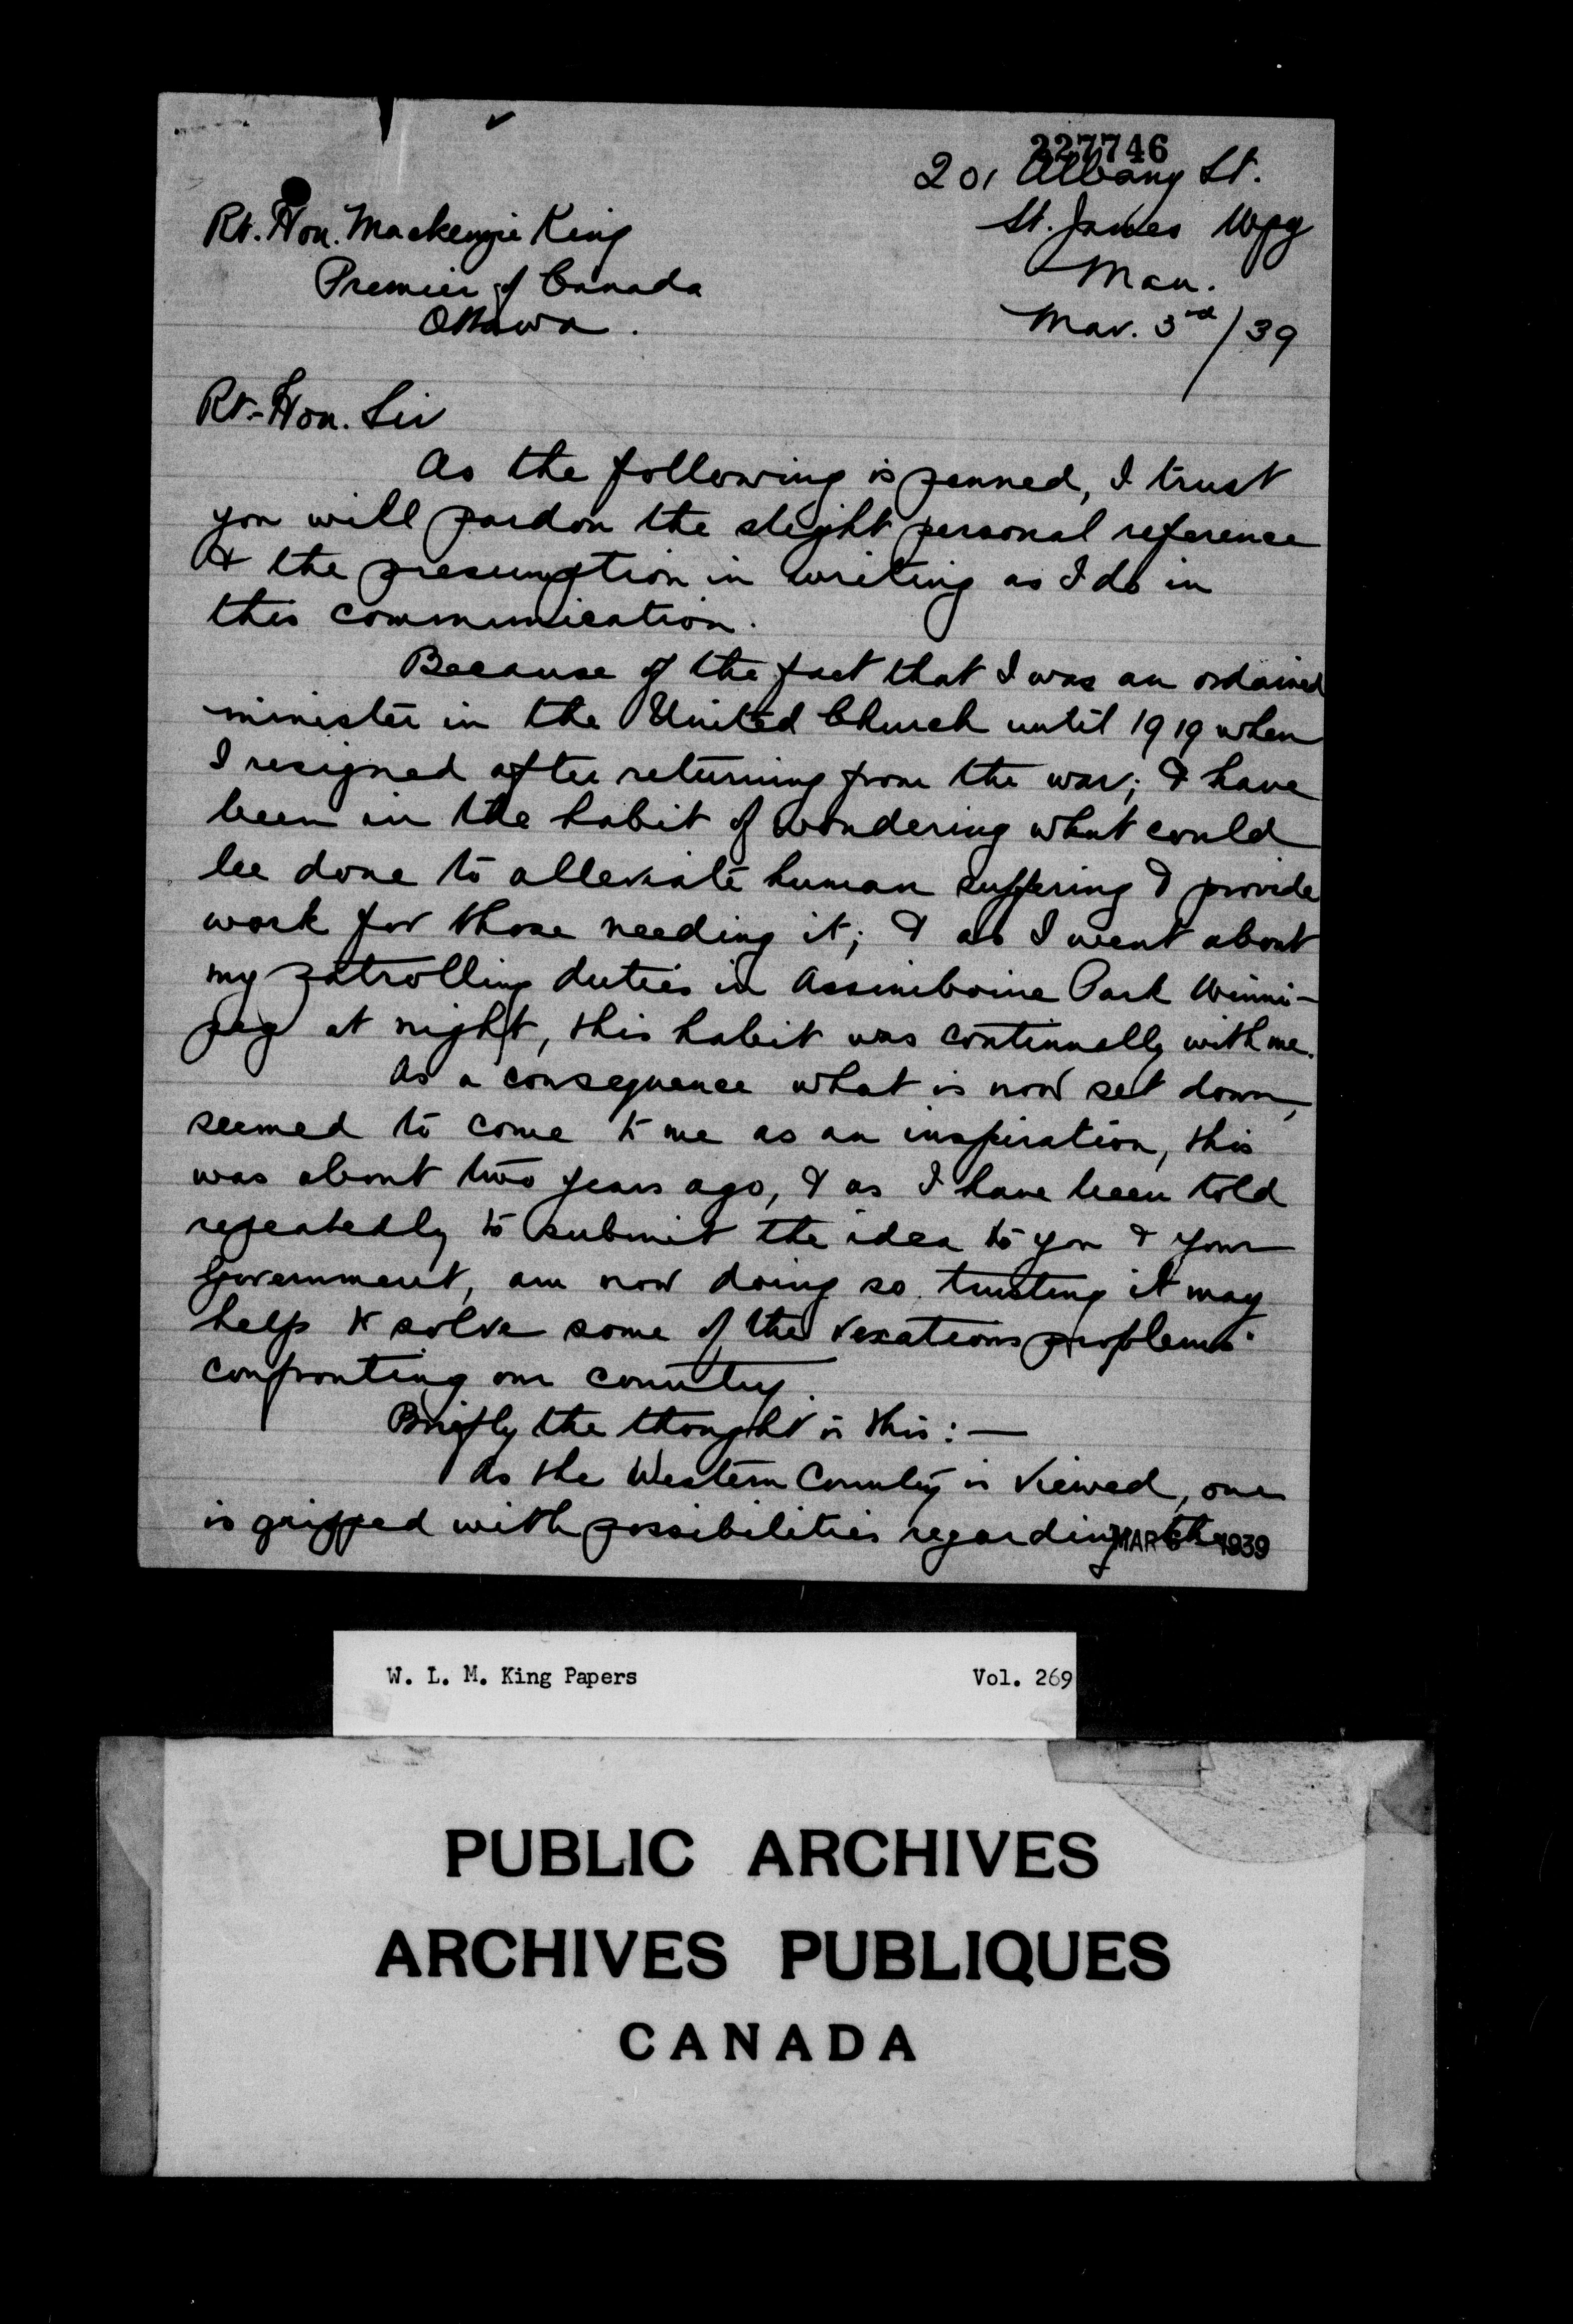 227746
201 Albany St.
St. James Wpg
Man.
Mar. 3rd/39
Rt. Hon. Mackenzie King
Premier of Canada
Ottawa.
Rt-Hon. Sir
As the following is penned, I trust
you will pardon the slight personal reference
& the presumption in writing as I do in
this communication.
Because of the fact that I was an ordained
minister in the United Church until 1919 when
I resigned after returning from the war; I have
been in the habit of wondering what could
be done to alleviate human suffering & provide
work for those needing it; & as I went about
my patrolling duties in Assiniboine Park Winni-
peg at night, this habit was continually with me.
As a consequence what is now set down,
seemed to come to me as an inspiration, this
was about two years ago, & as I have been told
repeatedly to submit the idea to you & your
Government, am now doing so trusting it may
help to solve some of the vexatious problems
confronting our country.
Briefly the thought is this:—
As the Western Country is viewed, one
is gripped with possibilities regarding the
MAR 1939
W. L. M. King Papers Vol. 269
PUBLIC ARCHIVES
ARCHIVES PUBLIQUES
CANADA